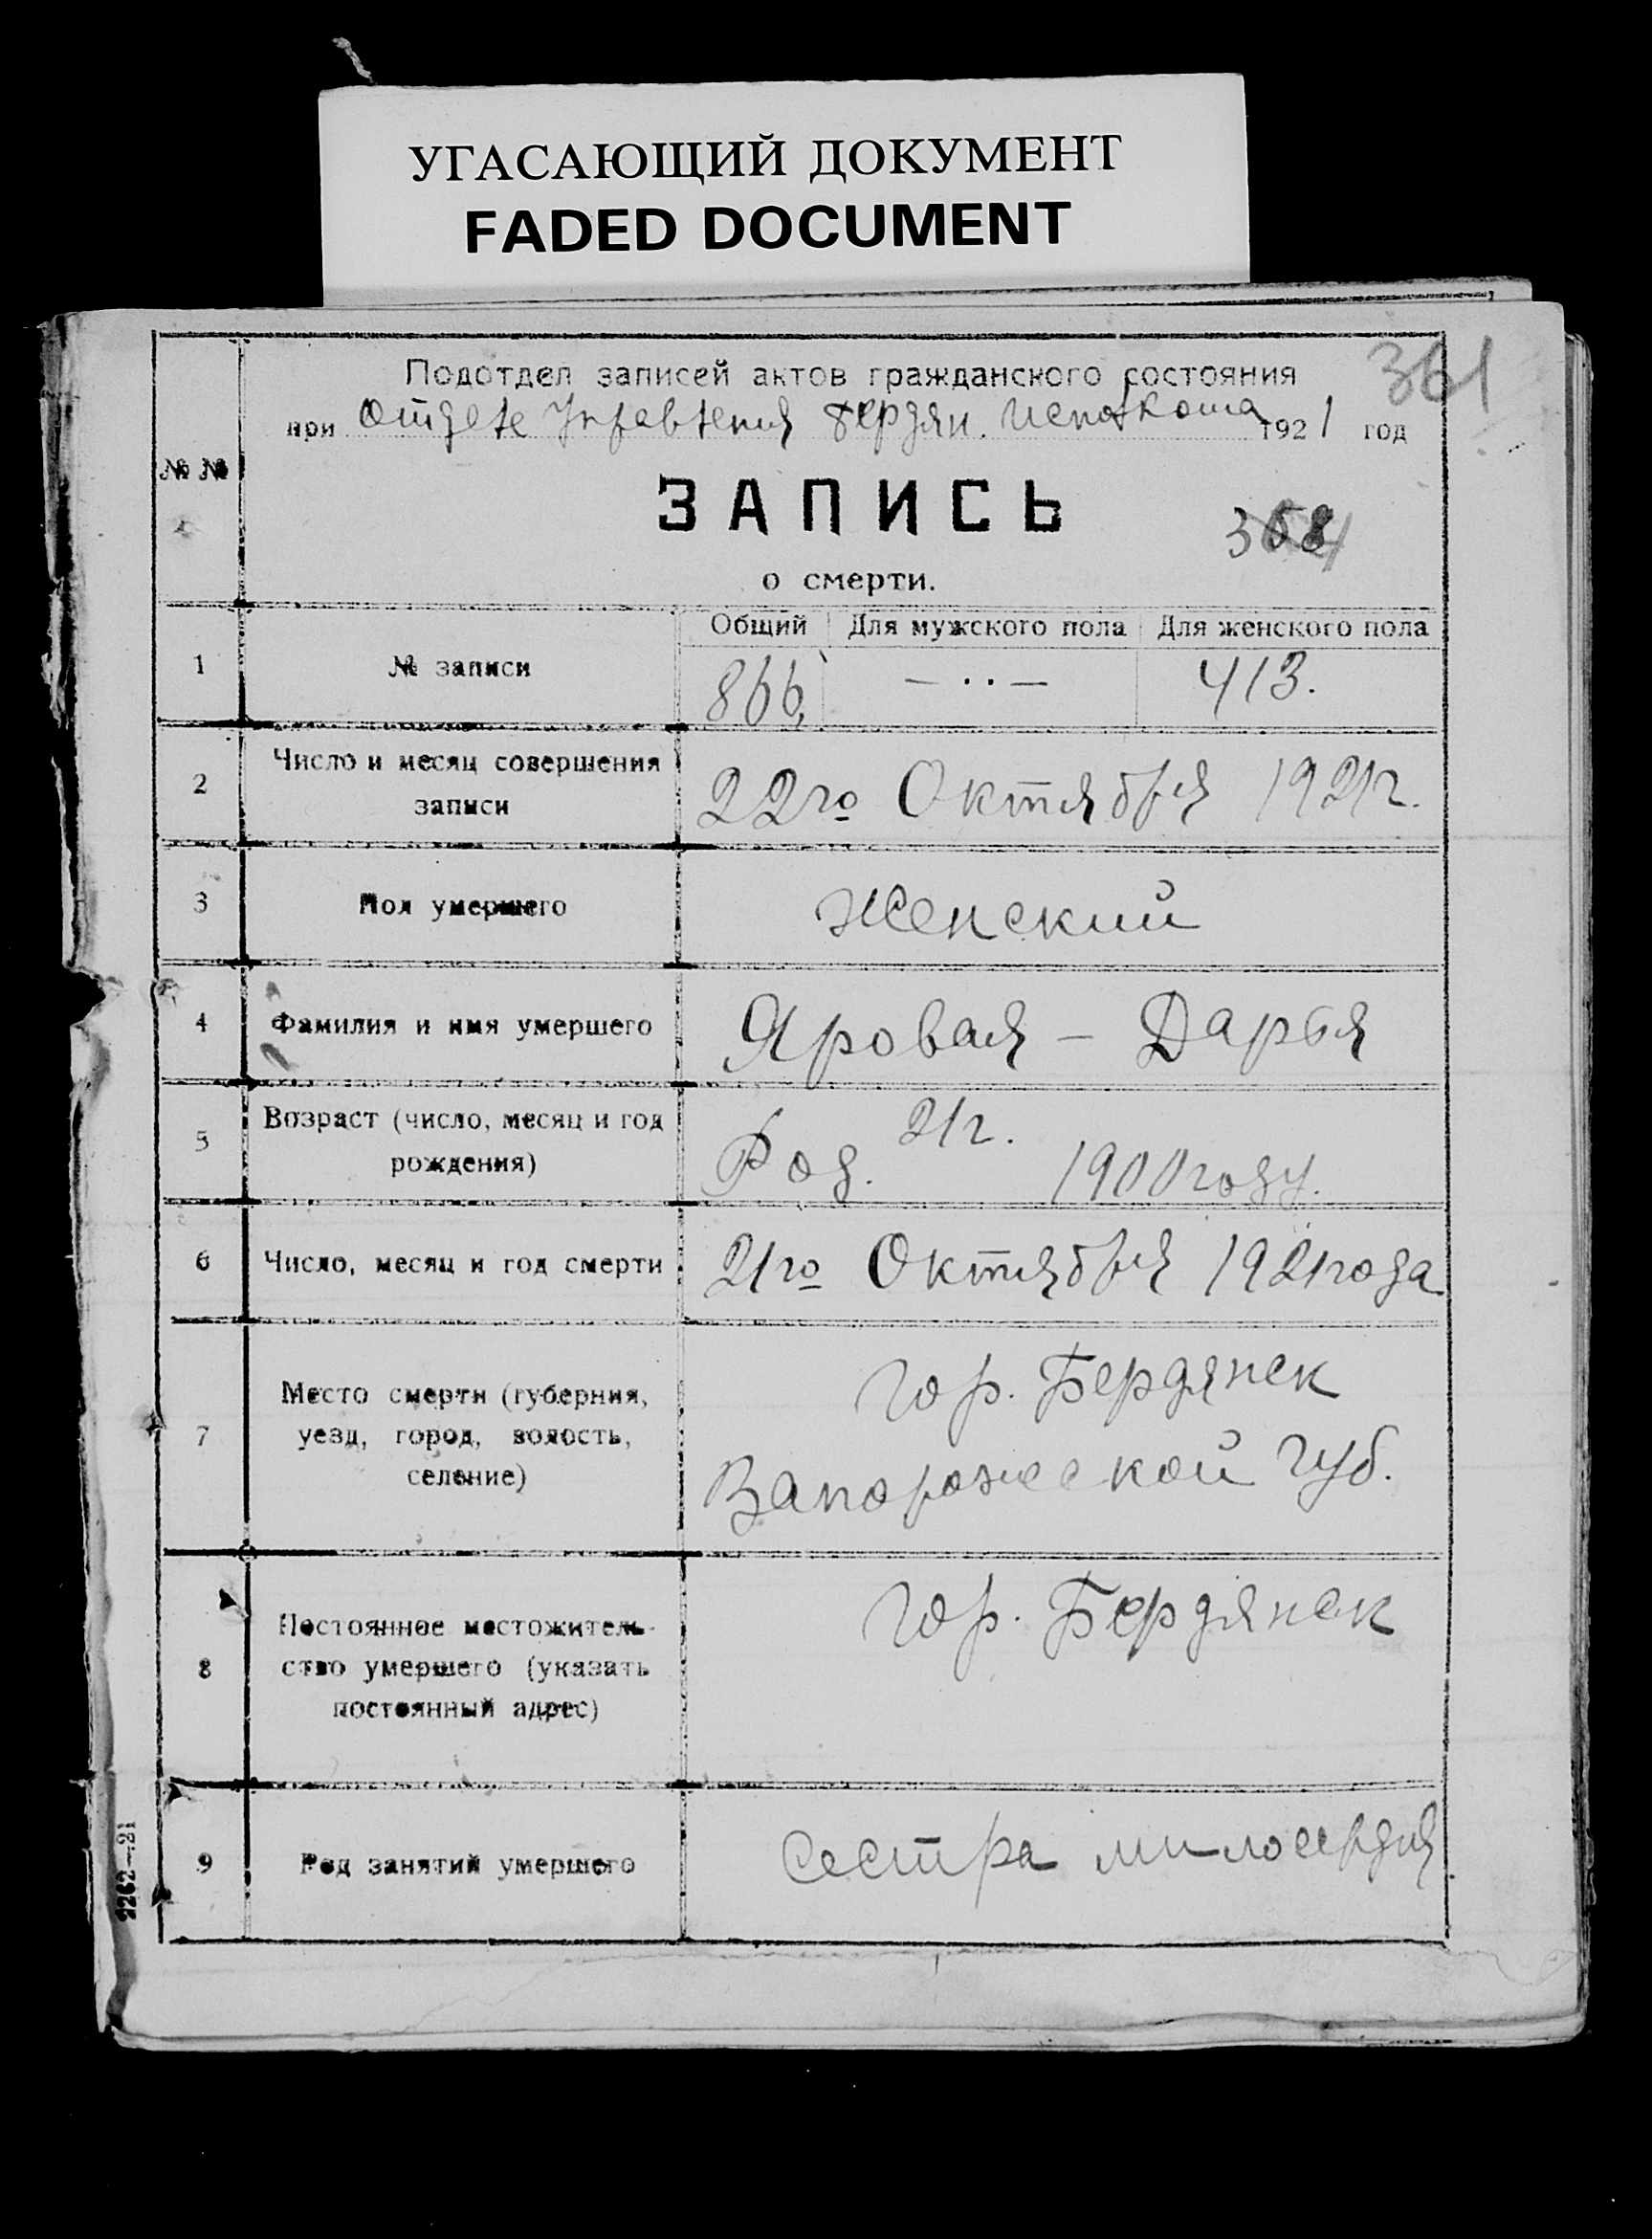 УГАСАЮЩИЙ ДОКУМЕНТ
FADED DOCUMENT
361
Подотдел записей актов гражданского состояния
при Отделе Управления Бердян. Исполкома 1921 год
№ №
ЗАПИСЬ
358
о смерти.
Общий Для мужского пола Для женского пола
1 № записи 866 — ·· — 413.
2 Число и месяц совершения
записи 22го Октября 1921г.
3 Пол умершего Женский
4 Фамилия и имя умершего Яровая – Дарья
5 Возраст (число, месяц и год
рождения) 21г.
Род. 1900 году.
6 Число, месяц и год смерти 21го Октября 1921 года
7 Место смерти (губерния,
уезд, город, волость,
селение) гор. Бердянск
Запорожской губ.
8 Постоянное местожитель-
ство умершего (указать
постоянный адрес) гор. Бердянск
9 Род занятий умершего Сестра милосердия
2262—21